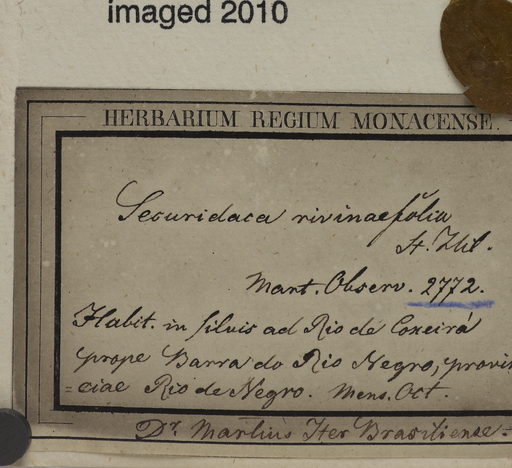 imaged 2010
HERBARIUM REGIUM MONACENSE.
Securidaca rivinaefolia
St. Hil.
Mart. Observ. 2772.
Habit. in silvis ad Rio de Coxeirá
prope Barra do Rio Negro, provin
=ciae Rio de Negro. Mens. Oct.
Dr. Martius Iter Brasiliense.